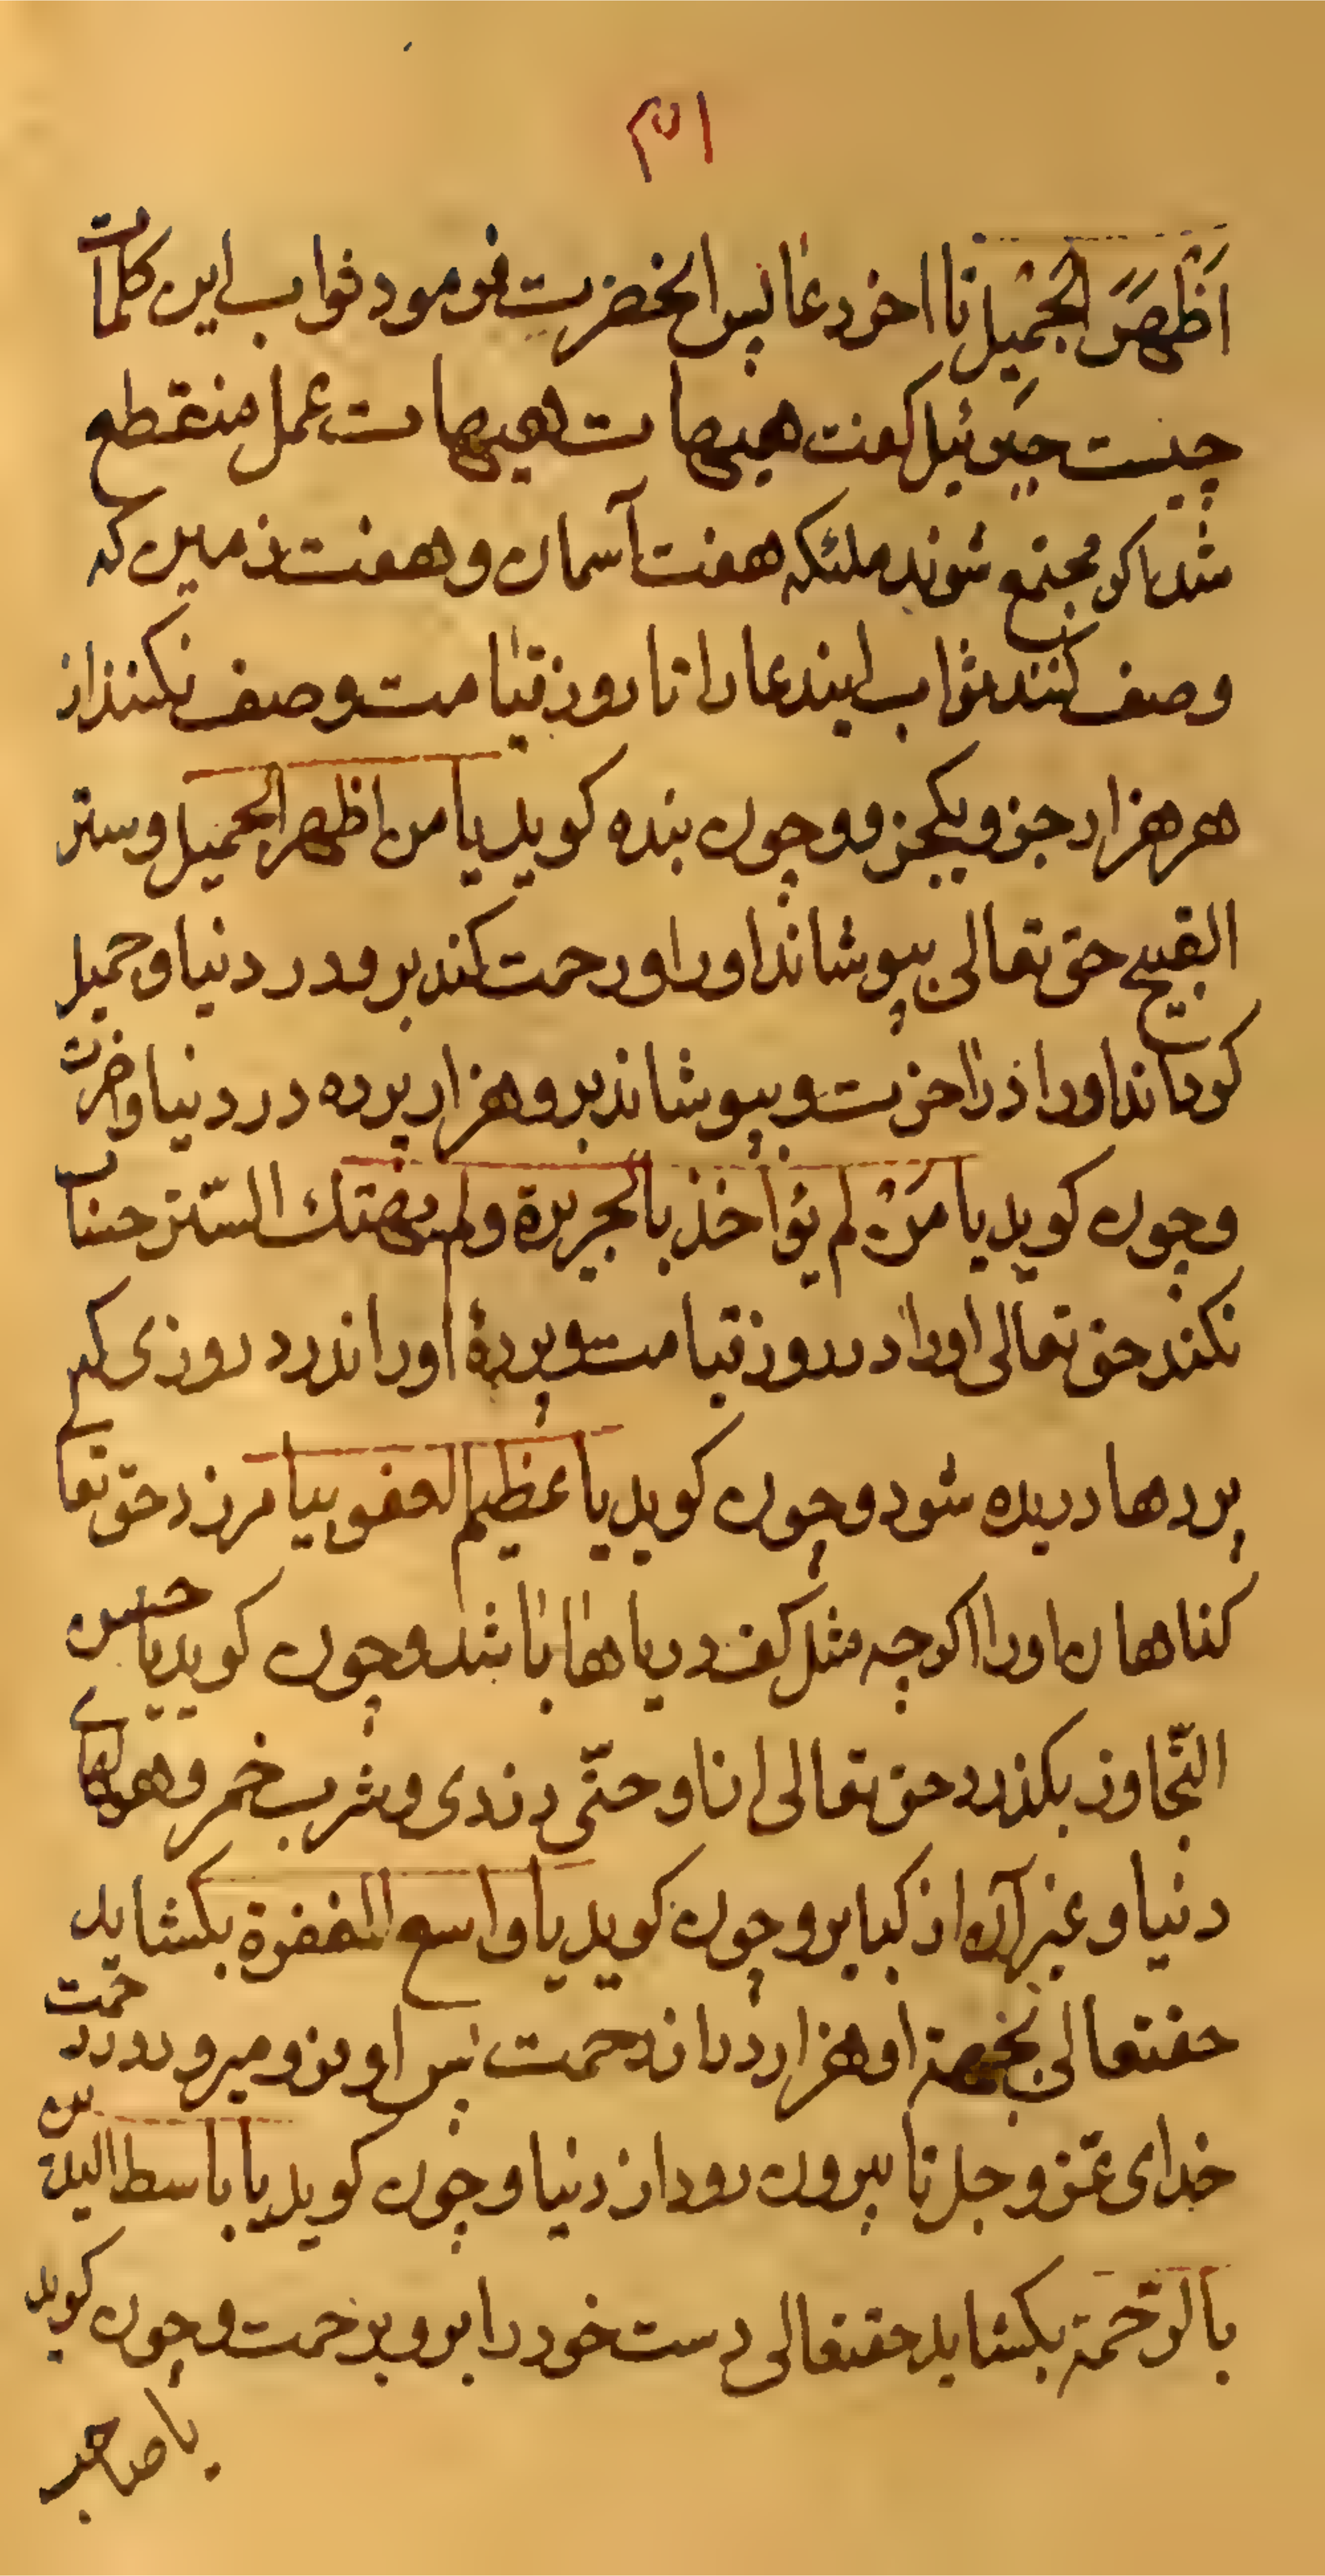 ۱۵۳
اَظْهَرَ الجْمَیل تا اخر دعا پس انحضرت فرمود ثواب این کلمات
چیست جبرئیل کفت هیهات هیهات عمل منقطع
شد اکر مجتمع شوند ملئکه هفت آسمان و هفت زمین که
وصف کنند ثواب ایندعا را تا روز قیامت وصف نکنند از
هر هزار جزو یکجزو و چون بنده کوید یا من اظهر الجمیل و ستر
القبیح حق تعالی بپوشاند او را و رحمت کند برو در دنیا و جمیل
کرداند او را در آخرت و بپوشاند برو هزار پرده در دنیا و اخرت
و چون کوید یا مَنْ لم یؤاخذ بالجریرة ولم یهتك السّتر حساب
نکند حق تعالی او را در روز قیامت و پردهٔ او را ندرد روزی که
پردها دریده شود و چون کوید یا عظیم العفو بیامرزد حق تعا
کناهان او را اکرچه مثل کف دریاها باشد و چون کوید یا حسن
التّجاوز بکذرد حق تعالی از او حتّی دزدی و شرب خمر و هولهای
دنیا و غیر آن از کبایر و چون کوید یا واسع المغفرة بکشاید
حقتعالی بجهة او هزار در از رحمت پس او فرو میرود در رحمت
خدای عزّ و جل تا بیرون رود از دنیا و چون کوید یا باسط الیدین
بالرّحمة بکشاید حقتعالی دست خود را برو برحمت و چون کوید
یا صاحب